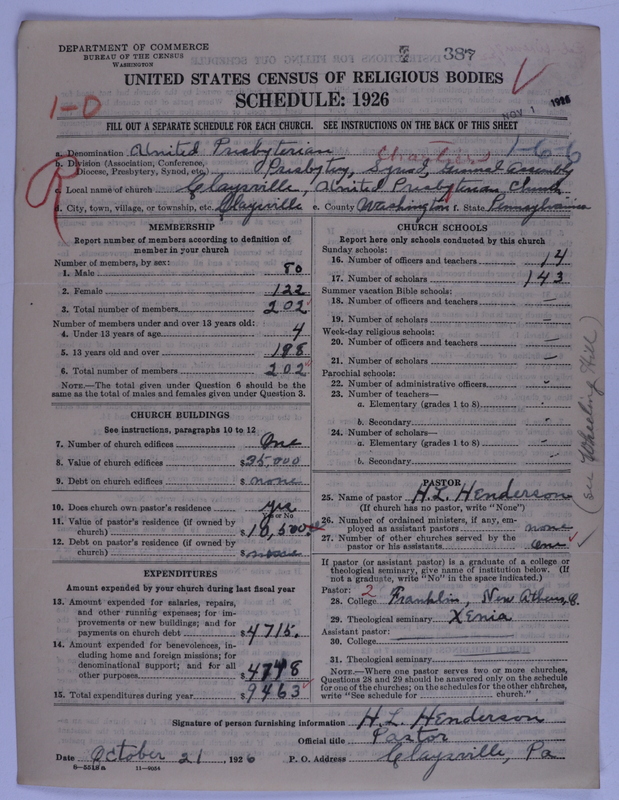 DEPARTMENT OF COMMERCE
BUREAU OF THE CENSUS
WASHINGTON
387
UNITED STATES CENSUS OF RELIGIOUS BODIES
SCHEDULE: 1926
1-D
NOV 1 1926
FILL OUT A SEPARATE SCHEDULE FOR EACH CHURCH. SEE INSTRUCTIONS ON THE BACK OF THIS SHEET
a. Denomination United Presbyterian 1-6-6
b. Division (Association, Conference, Diocese, Presbytery, Synod, etc.) Presbytery, Synod, General Assembly
c. Local name of church Claysville, United Presbyterian Church
d. City, town, village, or township, etc. Claysville e. County Washington f. State Pennsylvania
MEMBERSHIP
Report number of members according to definition of
member in your church
Number of members, by sex:
1. Male 80
2. Female 122
3. Total number of members 202
Number of members under and over 13 years old:
4. Under 13 years of age 4
5. 13 years old and over 198
6. Total number of members 202
NOTE.—The total given under Question 6 should be
same as the total of males and females given under Question 3.
CHURCH BUILDINGS
See instructions, paragraphs 10 to 12
7. Number of church edifices One
8. Value of church edifices $35,000
9. Debt on church edifices $ none
10. Does church own pastor's residence yes
Yes or No
11. Value of pastor's residence (if owned by
church) $10,500.00
12. Debt on pastor's residence (if owned by
church) $ none
EXPENDITURES
Amount expended by your church during last fiscal year
13. Amount expended for salaries, repairs,
and other running expenses; for im-
provements or new buildings; and for
payments on church debt $4715.
14. Amount expended for benevolences, in-
cluding home and foreign missions; for
denominational support; and for all
other purposes $4748
15. Total expenditures during year $9463
CHURCH SCHOOLS
Report here only schools conducted by this church
Sunday schools:
16. Number of officers and teachers 14
17. Number of scholars 143
Summer vacation Bible schools:
18. Number of officers and teachers —
19. Number of scholars —
Week-day religious schools:
20. Number of officers and teachers —
21. Number of scholars —
Parochial schools:
22. Number of administrative officers -
23. Number of teachers—
a. Elementary (grades 1 to 8) -
b. Secondary -
24. Number of scholars—
a. Elementary (grades 1 to 8) -
b. Secondary -
(see Wheeling Hill)
PASTOR
25. Name of pastor H. L. Henderson
(If church has no pastor, write "None")
26. Number of ordained ministers, if any, em-
ployed as assistant pastors none
27. Number of other churches served by the
pastor or his assistants One
If pastor (or assistant pastor) is a graduate of a college or
theological seminary, give name of institution below. (If
not a graduate, write "No" in the space indicated.)
Pastor: 2
28. College Franklin, New Athens, O.
29. Theological seminary Xenia
Assistant pastor:
30. College
31. Theological seminary
NOTE.—Where one pastor serves two or more churches,
Questions 28 and 29 should be answered only on the schedule
for one of the churches; on the schedules for the other churches,
write "See schedule for ........ church."
Signature of person furnishing information H. L. Henderson
Official title Pastor
Date October 21, 1926 P. O. Address Claysville, Pa
8-5518a 11-9054